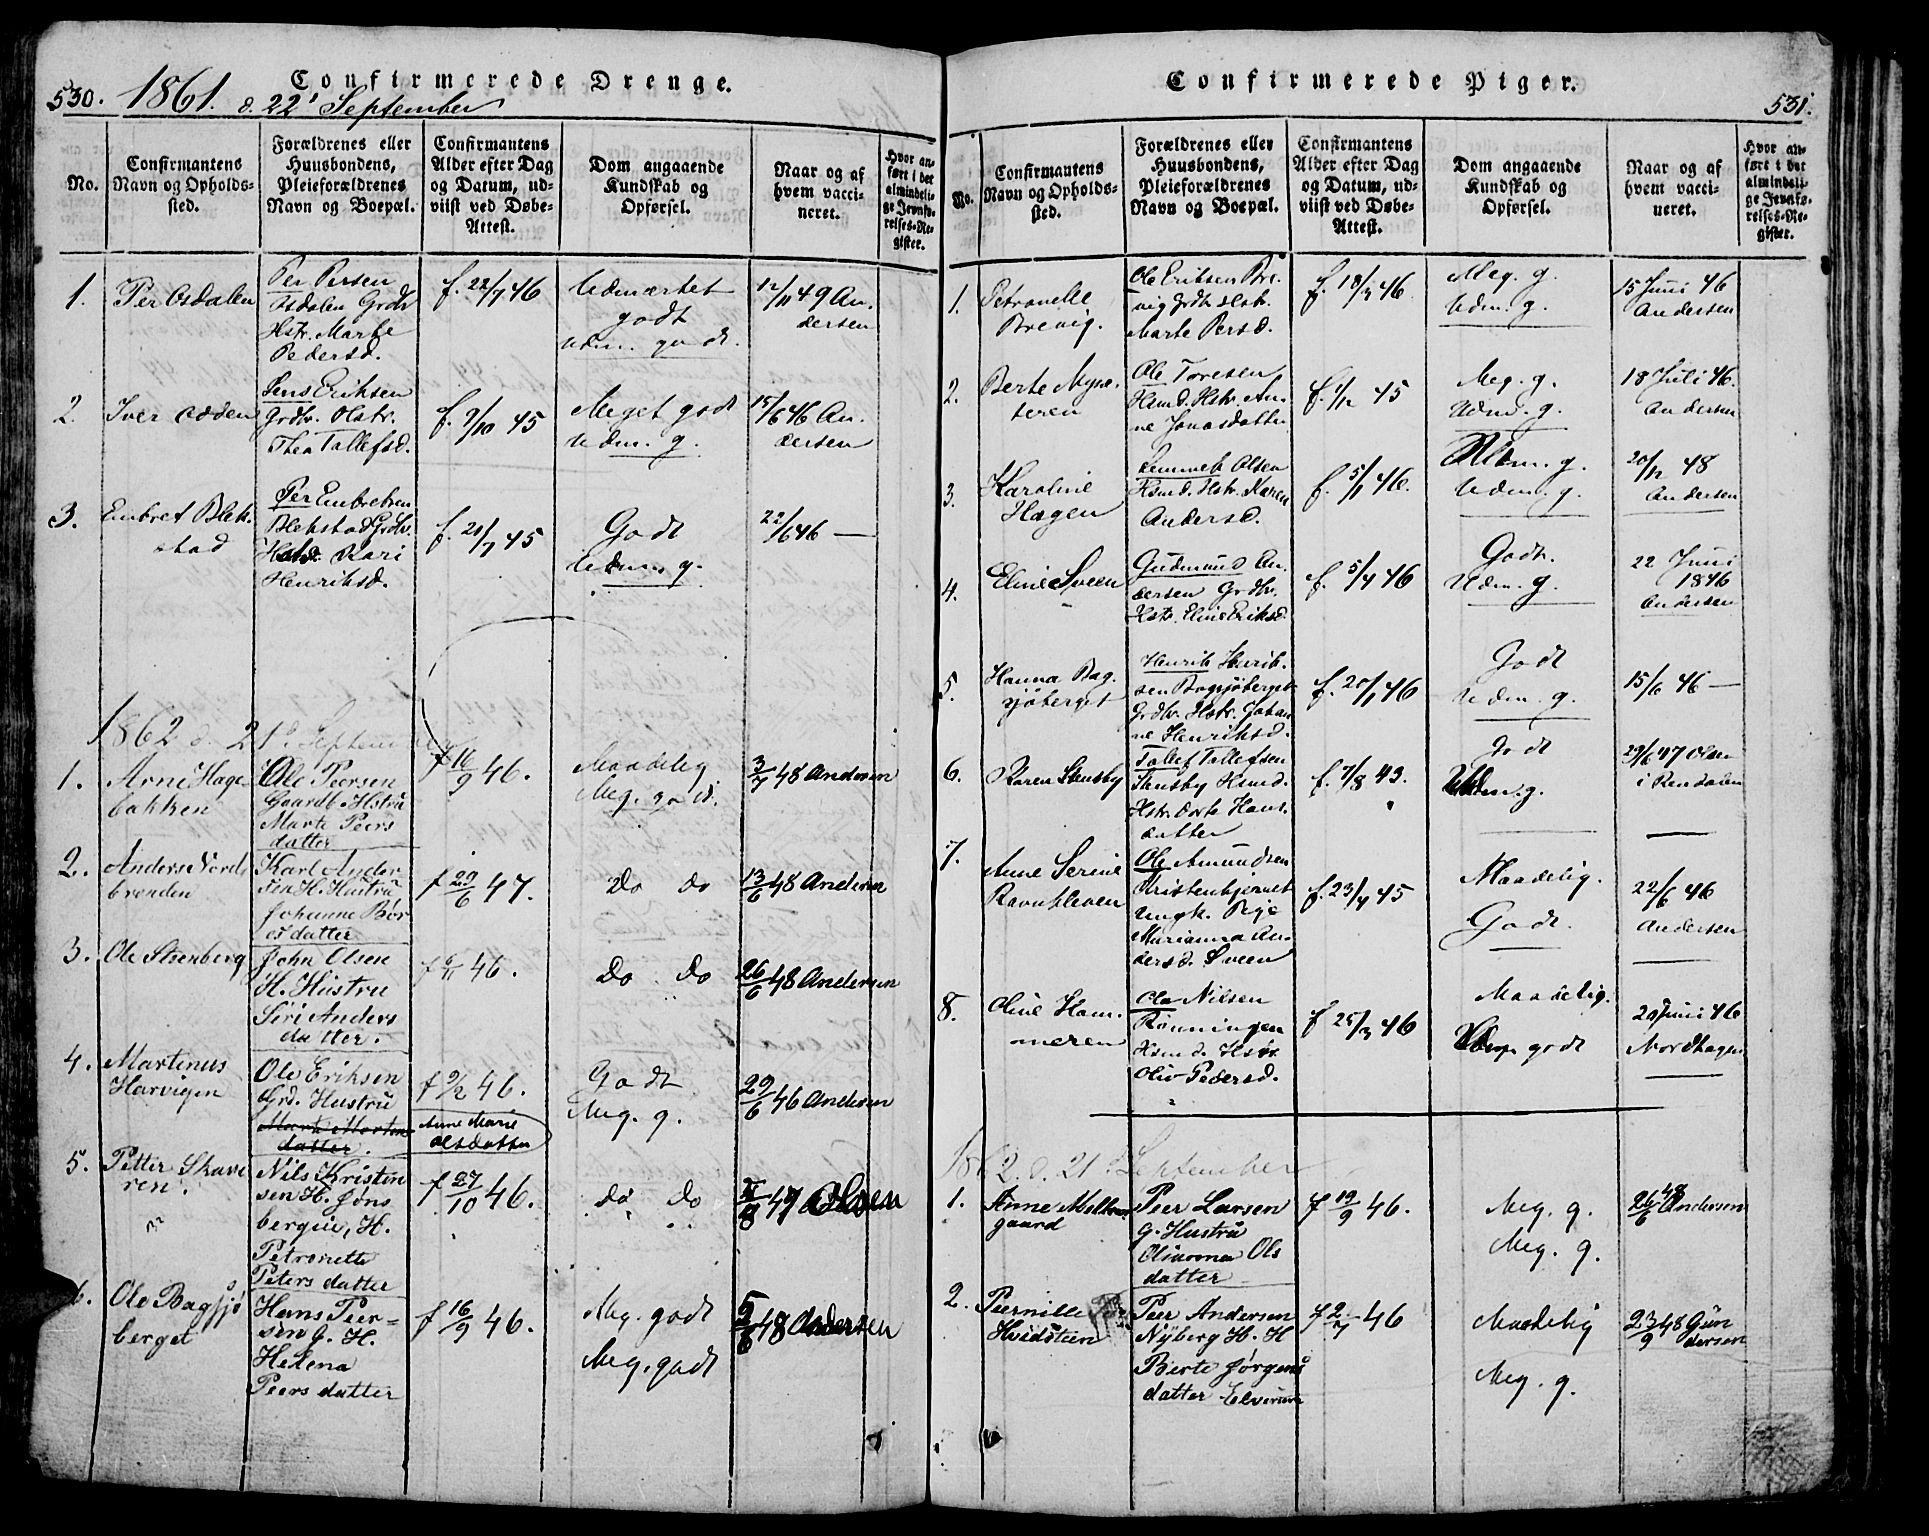 530. 1861. d. 22' September
Confirmerede Drenge.
No.
Confirmantens Navn og Opholds-
sted.
Forældrenes eller
Huusbondens,
Pleieforældrenes
Navn og Boepæl.
Confirmantens
Alder efter Dag
og Datum, ud-
viist ved Døbe-
Attest.
Dom angaaende
Kundskab og
Opførsel.
Naar og af
hvem vacci-
neret.
Hvor an-
ført i det
almindeli-
ge Jevnfø-
relses-Re-
gister.
1. Per Osdalen
Per Persen
Osdalen Grdbr
Hstr. Marte
Pedersd.
f. 22/7 46
Udmærket
godt
Udm. godt.
12/11 49 An-
dersen
2. Iver Odden
Jens Eriksen
Grdbr. Hstr.
Thea Tollefsd.
f. 9/10 45
Meget godt
Udm. g.
15/6 46 An-
dersen
3. Embret Blek-
stad
Per Embretsen
Blekstad Grdbr.
Hstr. Kari
Henriksd.
f. 21/7 45
Godt
Udm. g.
22/6 46 —
1862 d. 21de September
1. Arne Hage-
bakken
Ole Peersen
Gaardb. Hstru
Marte Peers
datter
f 16/9 46.
Maadelig
Meg. godt.
3/7 48 Andersen
2. Anders Nords
brenden
Karl Ander
sen H. Hustru
Johanne Bør
esdatter
f 29/6 47.
Do Do
13/6 48 Andersen
3. Ole Steenberg
John Olsen
H. Hustru
Siri Anders
datter.
f 6/11 46.
Do Do
26/6 48 Andersen
4. Martinus
Harvigen
Ole Eriksen
Grd. Hustru
Marte Morten
datter.
Anne Marie
Olsdatter
f 9/2 46.
Godt
Meg. g.
29/6 46 Andersen
5. Petter Skave
ren.
Nils Kristen
sen H. Jøns
bergie, H.
Petronette
Peters datter
f 27/10 46.
Do Do
47 Olsen
6. Ole Bagsjø
berget
Hans Peer-
sen g. H.
Helena
Peers datter
f 16/9 46.
Meg. godt
Meg. godt
5/6 48 Andersen
Confirmerede Piger.
531.
No.
Confirmantens
Navn og Opholds-
sted.
Forældrenes eller
Huusbondens,
Pleieforældrenes
Navn og Boepæl.
Confirmantens
Alder efter Dag
og Datum, ud-
viist ved Døbe-
Attest.
Dom angaaende
Kundskab og
Opførsel.
Naar og af
hvem vacci-
neret.
Hvor an-
ført i det
almindeli-
ge Jevnfø-
relses-Re-
gister.
1. Petronelle
Brevig.
Ole Eriksen Bre-
vig Grdbr Hstr.
Marte Persd.
f. 18/3 46
Meg. g.
Udm. g.
15 Juni 46
Andersen
2. Berte Myse-
teren
Ole Toresen
Hsmd. Hstr. An-
ne Jonasdatter
f. 1/12 45
Meg. g.
Udm. g.
18 Juli 46.
Andersen
3. Karoline
Hagen
Semmek Olsen
Hsmd. Hstr. Karen
Andersd.
f. 5/1 46.
Udm. g.
Udm. g.
20/12 48
Andersen
4. Eline Sveen
Gudmund An-
dersen Grdbr.
Hstr. Eline Eriksd.
f. 5/4 46
Godt.
Udm. g.
22 Juni
1846
Andersen
5. Hanna Bag-
sjøberget
Henrik Henrik-
sen Bagsjøberget
Grdbr. Hstr. Johan
ne Henriksd.
f. 20/1 46
Godt
Udm. g.
15/6 46 —
6. Karen Stensby
Tollef Tollefsen
Stensby Hsmd.
Hstr. Dorte Hans-
datter
f. 7/8 43.
Godt
Udm. g.
29/6 47 Olsen
i Rendalen
7. Anne Serine
Ravnkleven
Ole Amundsen
Kristenkjernet
Ungk. Pige
Marianna An-
dersd. Sveen
f. 23/4 45
Maadelig.
Godt.
22/6 46
Andersen
8. Oline Ham-
meren
Ole Nilsen
Rønningen
Hsmd. Hstr.
Oliv Pedersd.
f 25/3 46
Maadelig.
godt
20 Juni 46
Nordhagen
1862. d. 21. September
1. Anne Mellem
gaard
Peer Larsen
g. Hustru
Olianna Ols
datter
f 19/9 46.
Meg. g.
Meg. g.
26/6 48 Andersen
2. Peernille
Hvidsteen
Peer Andersen
Nyberg H. H
Berte Jørgens
datter Elverum
f 2/7 46
Maadelig
Meg. g.
23/9 48 Gun
dersen